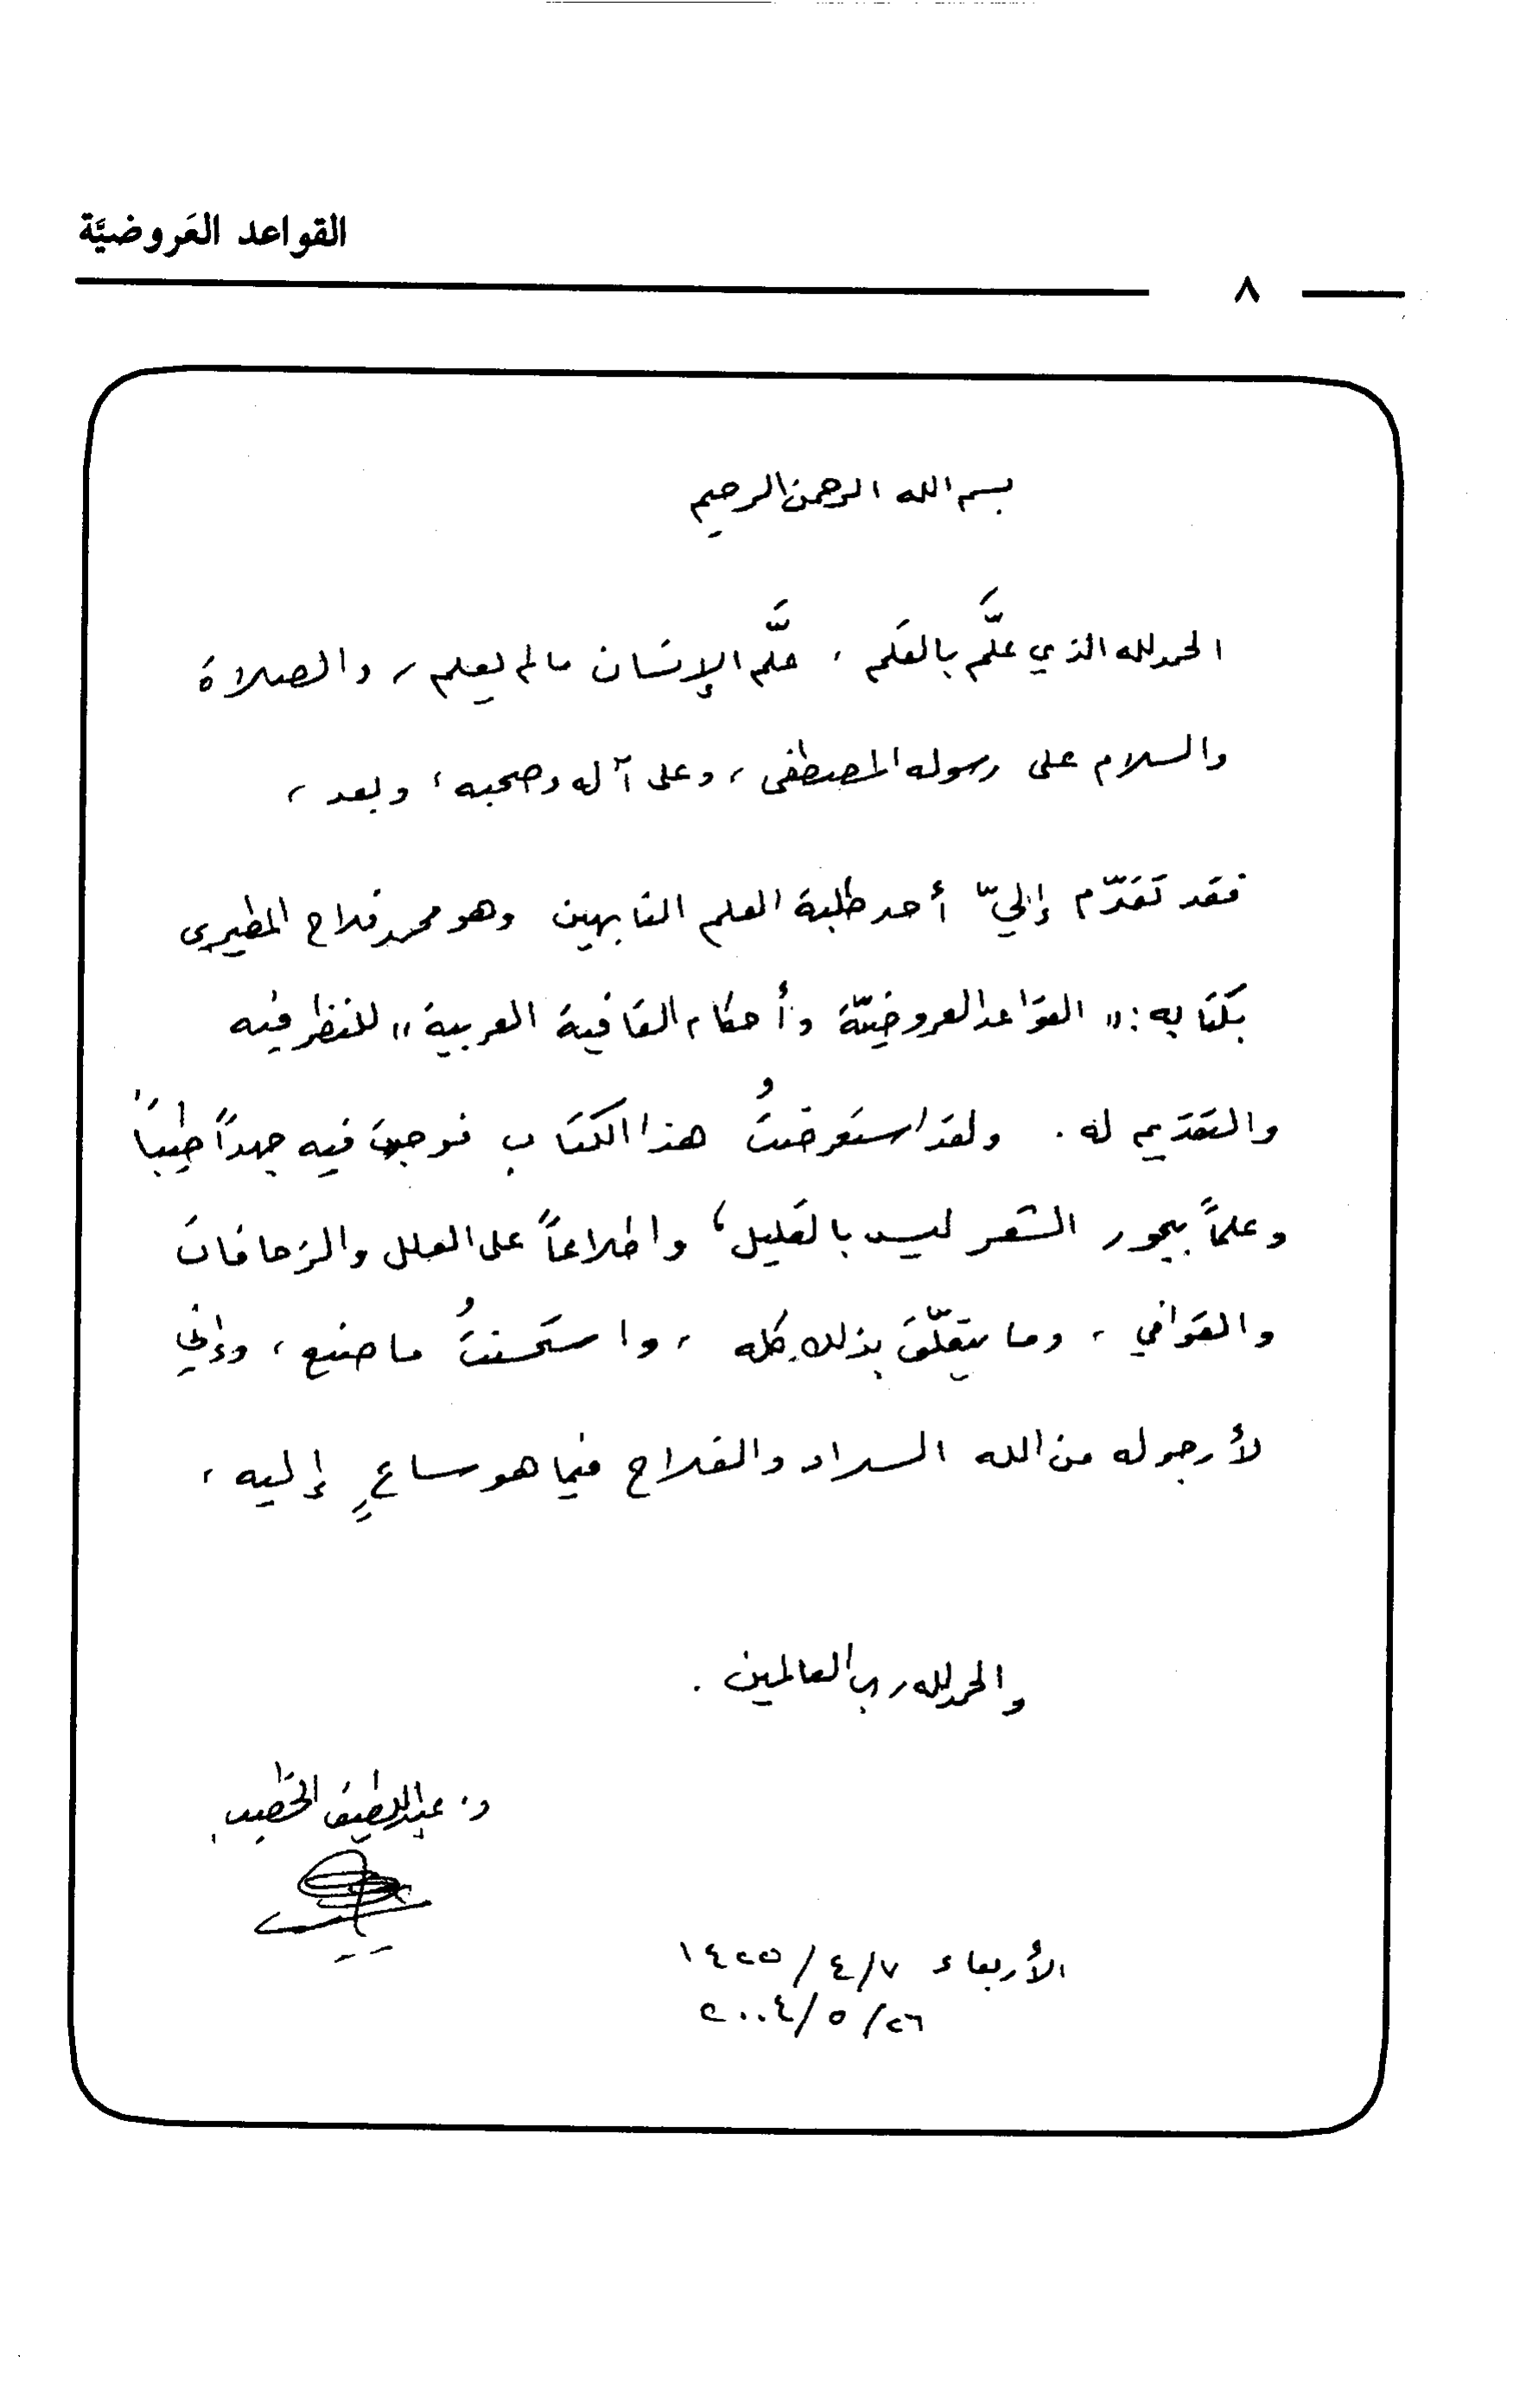 القواعد العَروضيَّة
٨
بسم الله الرحمن الرحيم
الحمد لله الذي علَّم بالقلم ، علَّم الإنسان ما لم يعلم ، والصلاة
والسلام على رسوله المصطفى ، وعلى آله وصحبه ، وبعد ،
فقد تقدّم إليّ أحد طلبة العلم النابهين وهو محمد فلاح المطيري
بكتابه : « القواعد العروضيّة وأحكام القافية العربية » للنظر فيه
والتقديم له . ولقد استعرضتُ هذا الكتاب فوجدت فيه جهداً طيباً
وعلماً ببحور الشعر ليس بالقليل ، واطلاعاً على العلل والزحافات
والقوافي ، وما يتعلّق بذلك كله ، واستحسنتُ ما صنع ، وإني
لأرجو له من الله السداد والفلاح فيما هو ساعٍ إليه ،
والحمد لله رب العالمين .
د. عبد اللطيف الخطيب
الأربعاء ٧/٤/١٤٢٥
٢٦/٥/٢٠٠٤